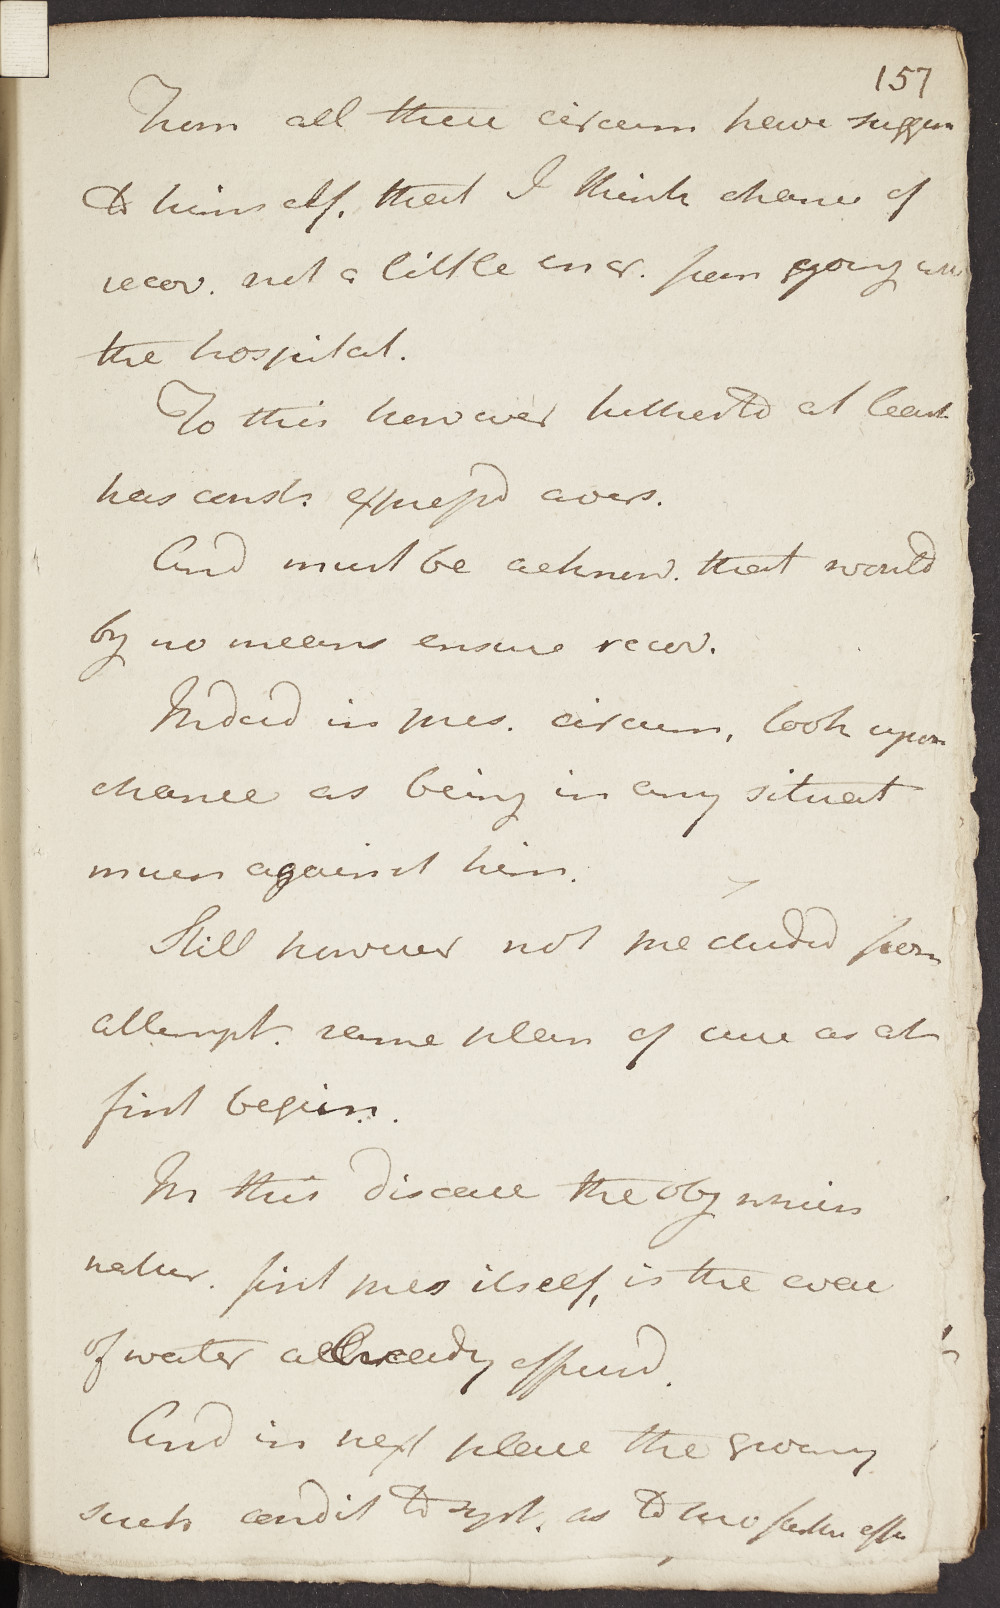 157
From all these circum have sugges
to himself, that I think chance of
recov. not a little incr. from going into
the hospital.
To this however hitherto at least
has const. express'd avers.
And must be acknow. that would
by no means ensure recov.
Indeed in pres. circum, look upon
chance as being in any situat
much against him.
Still however not precluded from
attempt. same plan of cure as at
first begun.
In this disease the obj which
natur. first pres itself, is the evac
of water allready effused.
And in next place the giving
such condit to syst. as to furthr effu